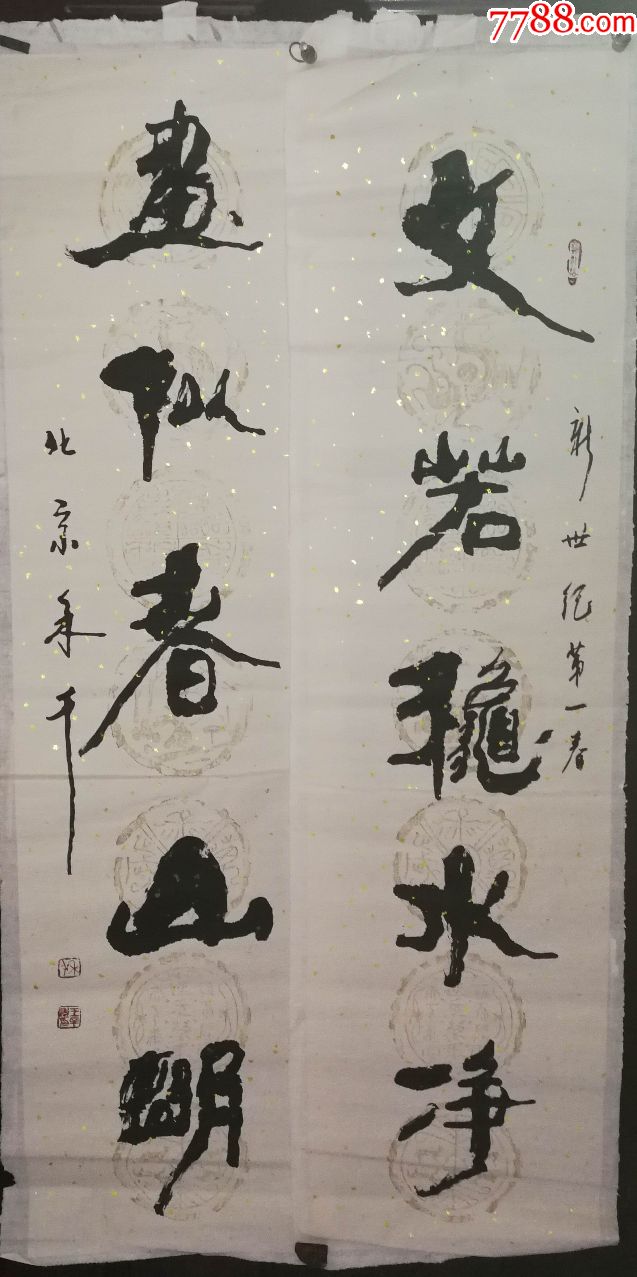 7788.com
新世纪第一春
文若龝水净
畫似春山朙
北京